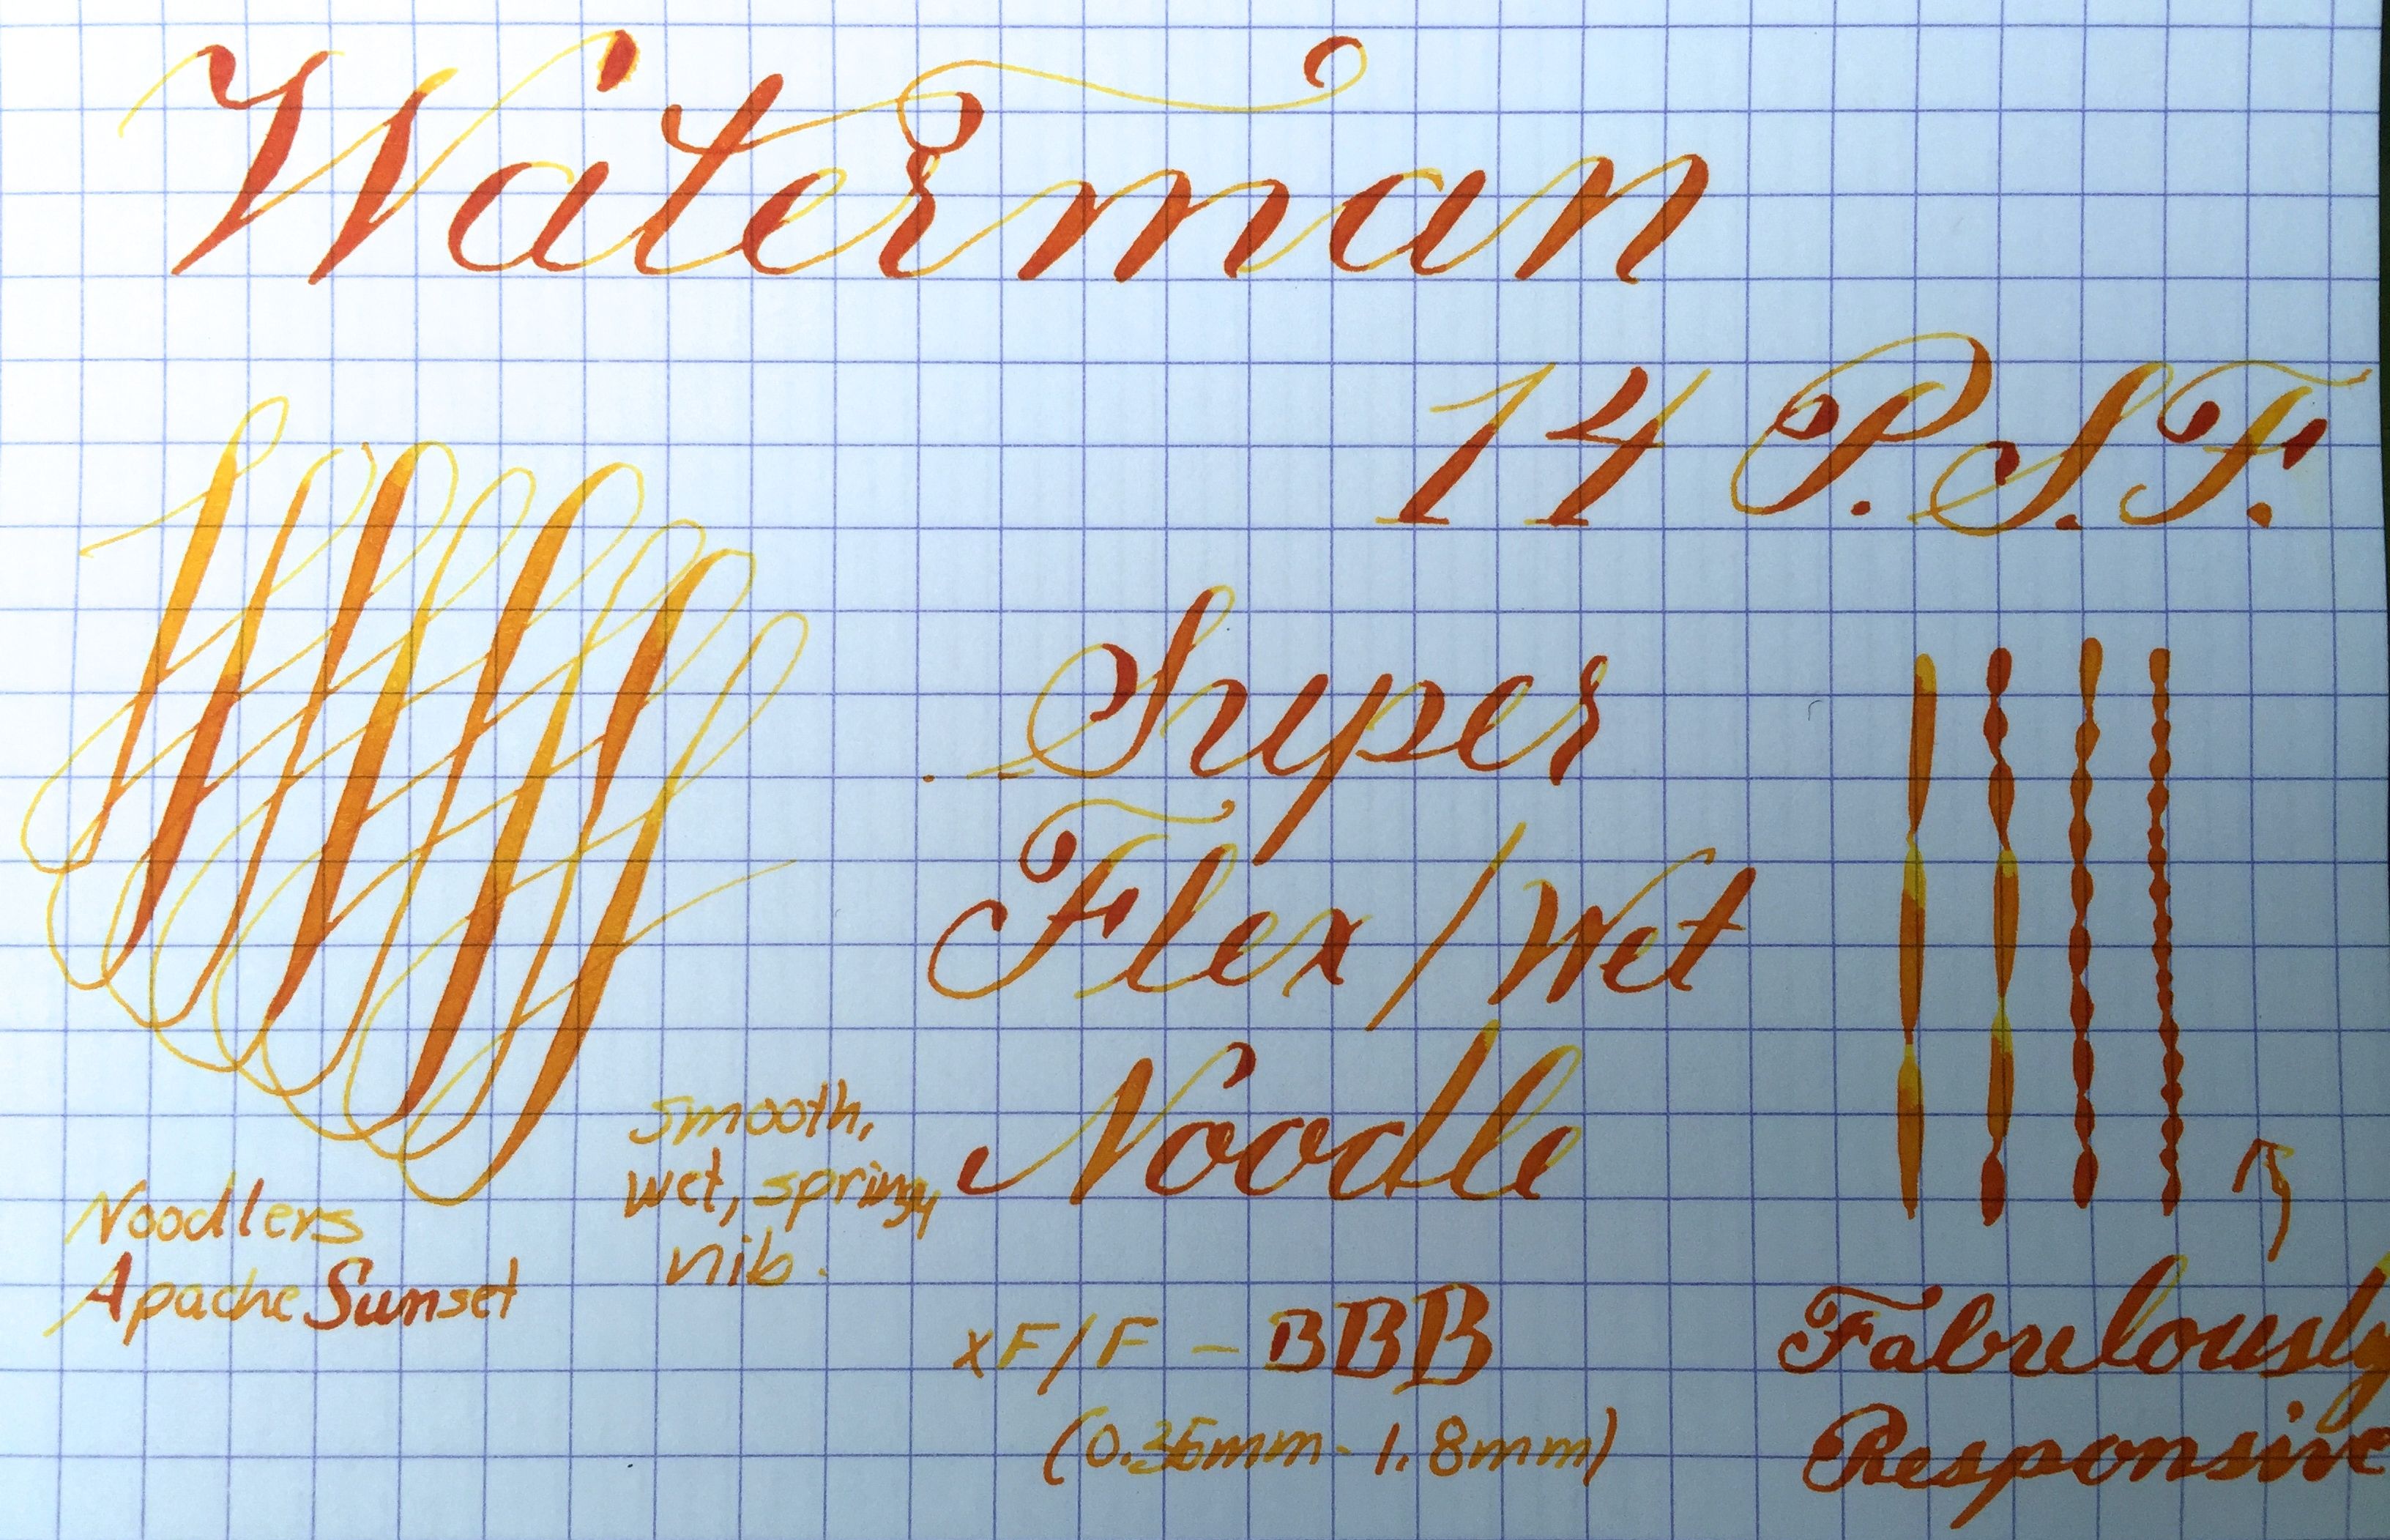 Waterman
14 P.S.F.
Super
Flex/Wet
Noodle
smooth,
wet, springy
nib.
Noodlers
Apache Sunset
xF/F - BBB
(0.36mm - 1.8mm)
Fabulously
Responsive